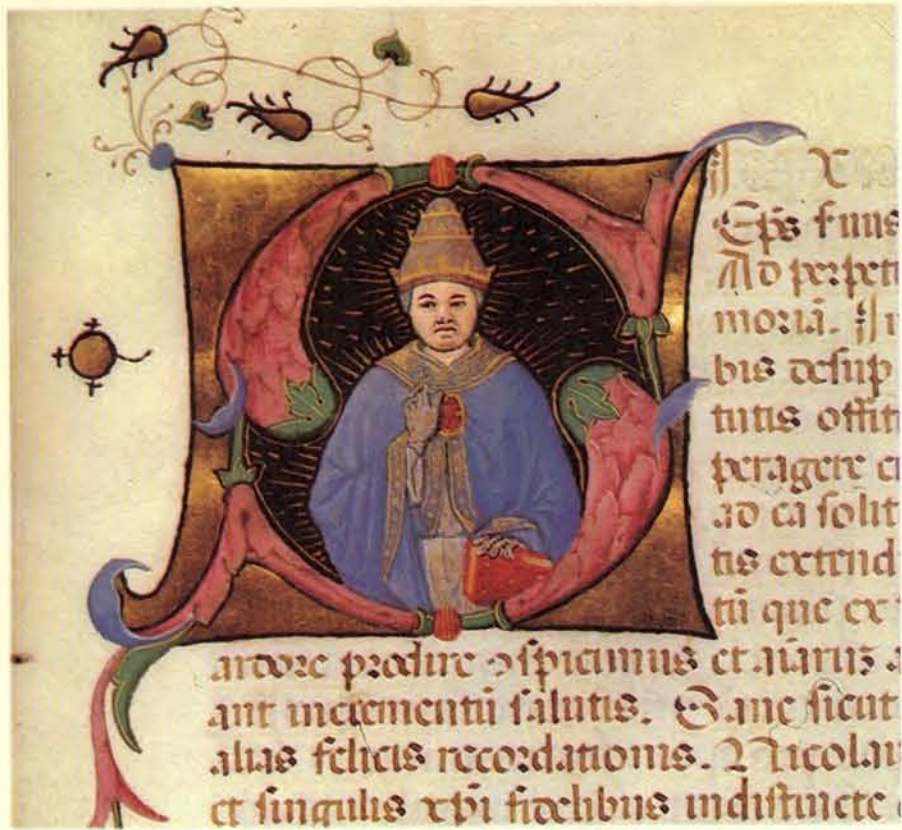 Ep̄s seruus
Ad perpetu
moriā. In
bis desup
tutis offit
peragere cu
ad ea solit
tis extend
tū que ex
ardore prodire ↄspicimus et aīarꝫ a
ant incrementū salutis. Sane sicut
alias felicis recordationis. Nicolau
et singulis xp̄i fidelibus indistincte